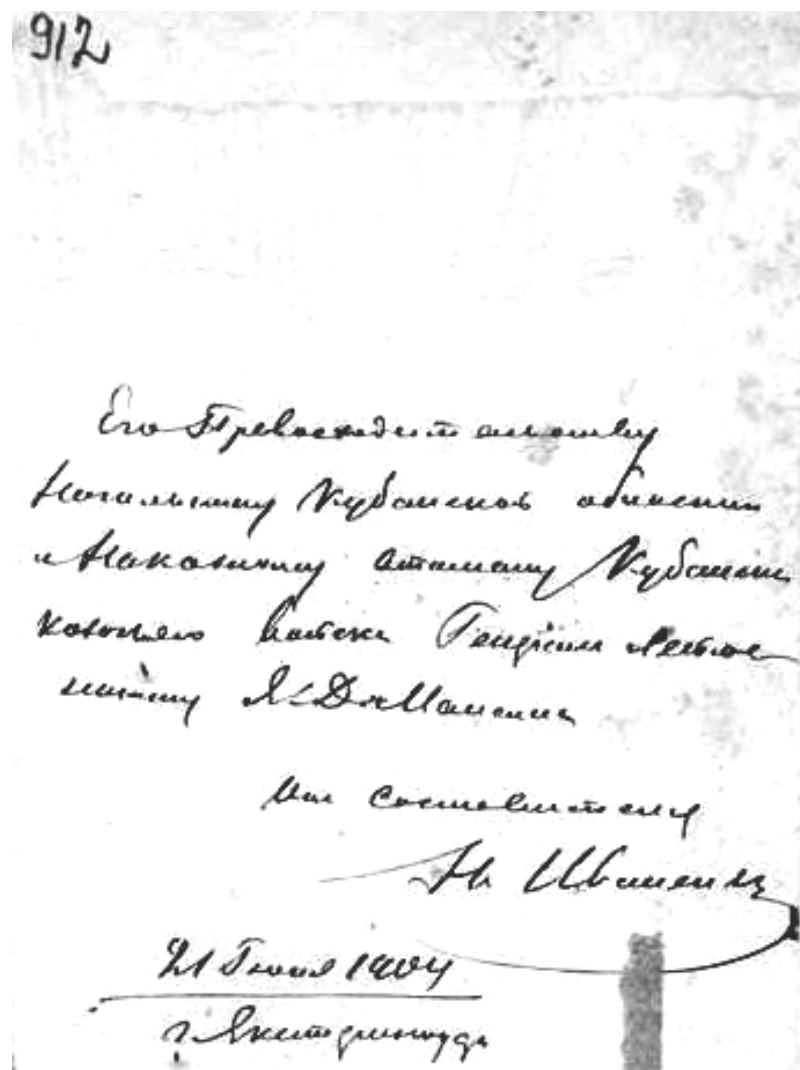 912
Его Превосходительству
Начальнику Кубанской области
и Наказному Атаману Кубанск
казачьего войска Генерал Лейте
нанту Я. Д. Маламе
от составителя
Н. Иваненко
21 Июня 1904
г. Екатеринодар